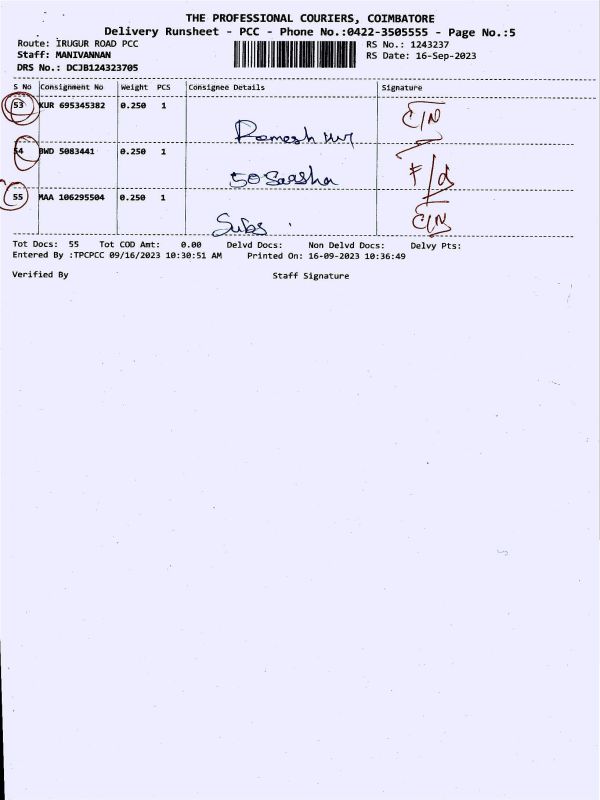 THE PROFESSIONAL COURIERS, COIMBATORE
Delivery Runsheet - PCC - Phone No.:0422-3505555 - Page No.:5
Route: IRUGUR ROAD PCC RS No.: 1243237
Staff: MANIVANNAN RS Date: 16-Sep-2023
DRS No.: DCJB124323705
S No Consignment No Weight PCS Consignee Details Signature
53 KUR 695345382 0.250 1 C/N
Ramesh
54 BWD 5083441 0.250 1
50 F/d
55 MAA 106295504 0.250 1
Subs C/N
Tot Docs: 55 Tot COD Amt: 0.00 Delvd Docs: Non Delvd Docs: Delvy Pts:
Entered By :TPCPCC 09/16/2023 10:30:51 AM Printed On: 16-09-2023 10:36:49
Verified By Staff Signature